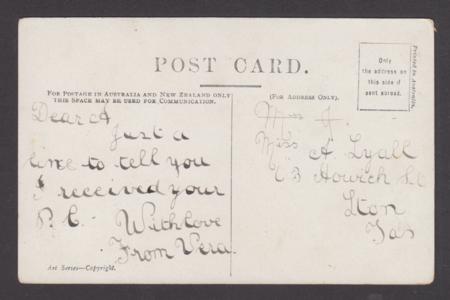 POST CARD.
FOR POSTAGE IN AUSTRALIA AND NEW ZEALAND ONLY
THIS SPACE MAY BE USED FOR COMMUNICATION.
(FOR ADDRESS ONLY).
Only
the address on
this side if
sent abroad.
Printed in Australia.
Dear A
Just a
line to tell you
I received your
P.C. With love
From Vera.
Miss
Miss A. Lyall
Howick St
Lton
Tas
Art Series—Copyright.